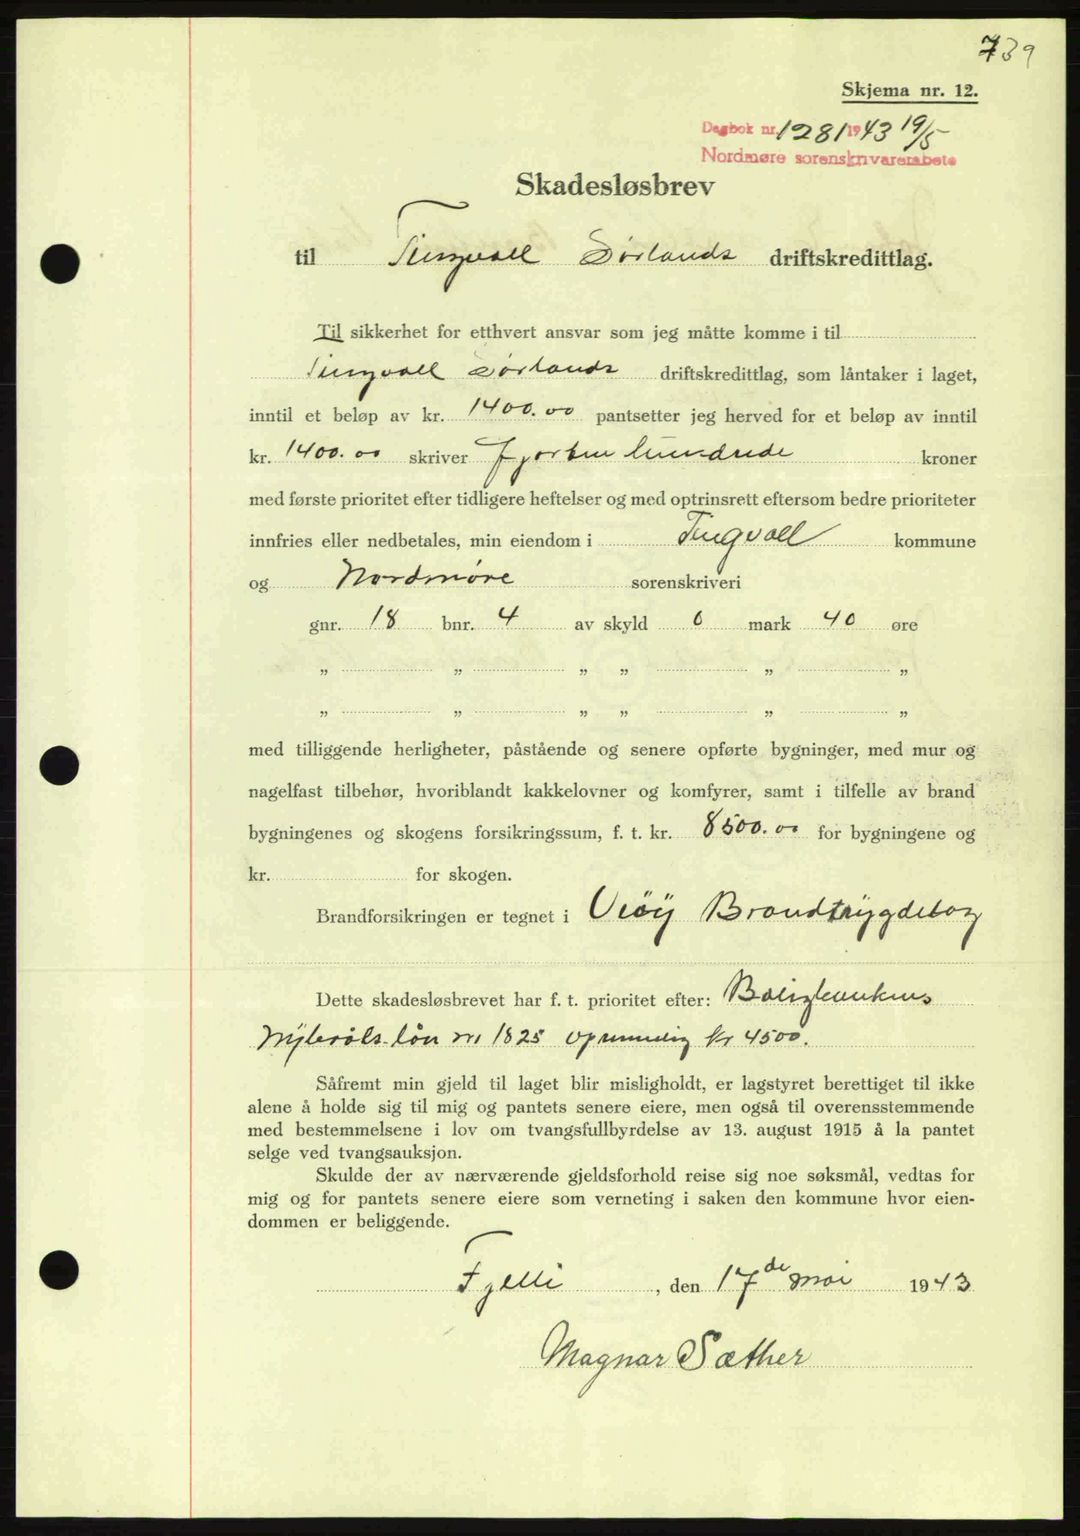 739
Skjema nr. 12.
Dagbok nr. 1281 1943 19/5
Nordmøre sorenskriverembete
Skadesløsbrev
til Tingvoll Sørlands driftskredittlag.
Til sikkerhet for etthvert ansvar som jeg måtte komme i til
Tingvoll Sørlands driftskredittlag, som låntaker i laget,
inntil et beløp av kr. 1400.00 pantsetter jeg herved for et beløp av inntil
kr. 1400.00 skriver fjorten hundrede kroner
med første prioritet efter tidligere heftelser og med optrinsrett eftersom bedre prioriteter
innfries eller nedbetales, min eiendom i Tingvoll kommune
og Nordmøre sorenskriveri
gnr. 18 bnr. 4 av skyld 0 mark 40 øre
„ „ „ „ „ „
„ „ „ „ „ „
med tilliggende herligheter, påstående og senere opførte bygninger, med mur og
nagelfast tilbehør, hvoriblandt kakkelovner og komfyrer, samt i tilfelle av brand
bygningenes og skogens forsikringssum, f. t. kr. 8500.00 for bygningene og
kr. for skogen.
Brandforsikringen er tegnet i Veöy Brandtrygdelag
Dette skadesløsbrevet har f. t. prioritet efter: Boligbankens
lån nr 1825 kr 4500.
Såfremt min gjeld til laget blir misligholdt, er lagstyret berettiget til ikke
alene å holde sig til mig og pantets senere eiere, men også til overensstemmende
med bestemmelsene i lov om tvangsfullbyrdelse av 13. august 1915 å la pantet
selge ved tvangsauksjon.
Skulde der av nærværende gjeldsforhold reise sig noe søksmål, vedtas for
mig og for pantets senere eiere som verneting i saken den kommune hvor eien-
dommen er beliggende.
Fjelli, den 17de mai 1943
Magnar Sæther